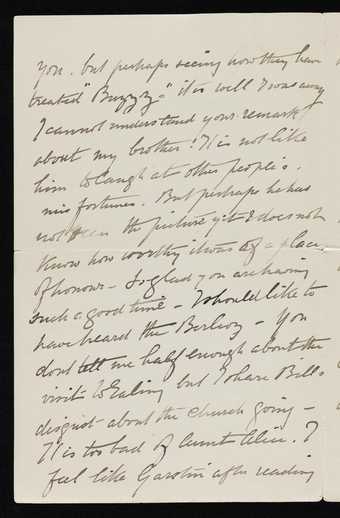 you. but perhaps seeing how they have
treated "Buzzzy" it is well I was away
I cannot understand your remark
about my brother! It is not like
him to laugh at other people's
misfortunes. But perhaps he has
not seen the picture yet & does not
know how worthy it was of a place
of honour - So glad you are having
such a good time - I should like to
have heard the Berlioz - You
dont tell me half enough about the
visit to Ealing but I share Bill's
disgust about the church going -
It is too bad of Aunt Alice. I
feel like Garstin after reading